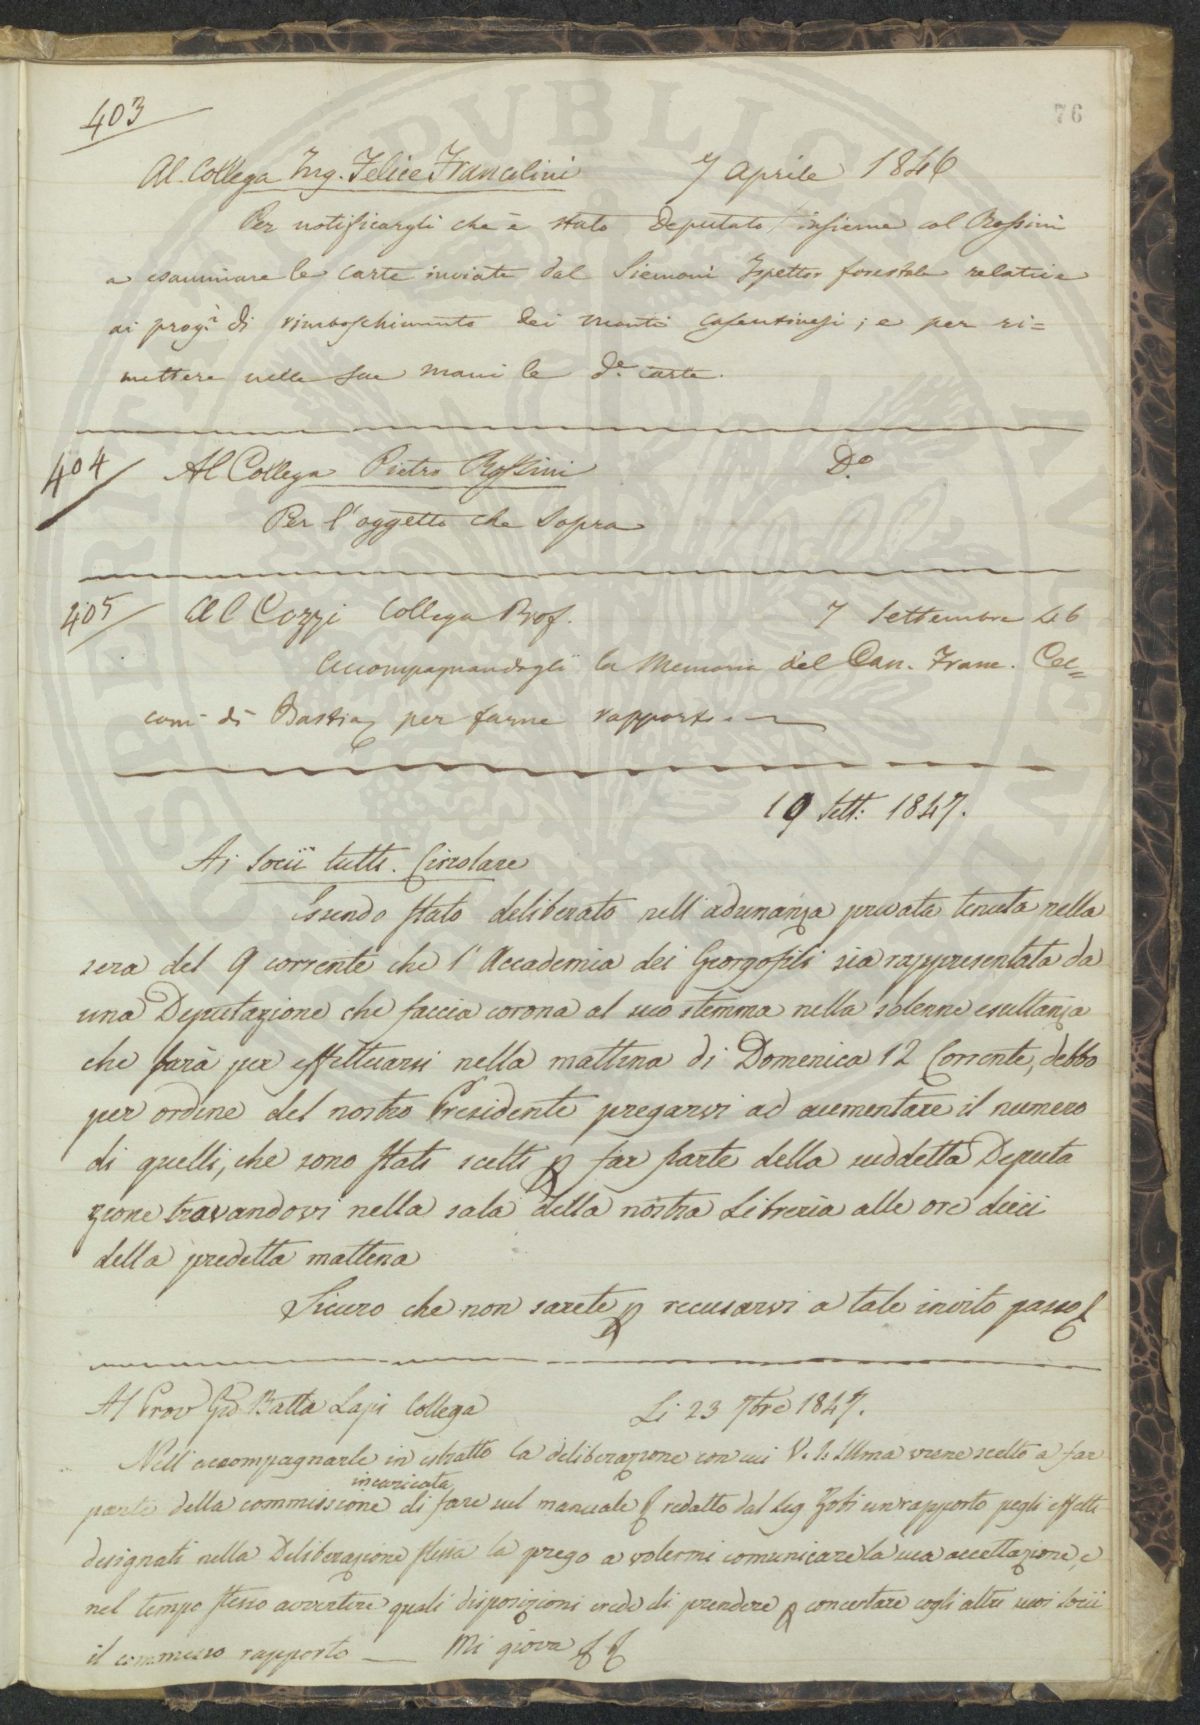 403
76
Al Collega Ing. Felice Francolini 7 Aprile 1846
Per notificargli che è stato Deputato insieme col Rossini
a esaminare le carte inviate dal Siemoni Ispettor forestale relative
ai prog.i di rimboschimento dei monti casentinesi; e per ri=
mettere nelle sue mani le d.e carte.
404 Al Collega Pietro Rossini D.o
Per l'oggetto che sopra
405 Al Cozzi Collega Prof. 7 Settembre 46
Accompagnandogli la Memoria del Can. Franc. Cec=
coni di Bastia per farne rapporto.
19 Sett: 1847.
Ai Socii tutti. Circolare
Essendo stato deliberato nell'adunanza privata tenuta nella
sera del 9 corrente che l'Accademia dei Georgofili sia rappresentata da
una Deputazione che faccia corona al suo stemma nella solenne esultanza
che sarà per effettuarsi nella mattina di Domenica 12 Corrente, debbo
per ordine del nostro Presidente pregarvi ad aumentare il numero
di quelli, che sono stati scelti p far parte della suddetta Deputa
zione trovandovi nella sala della nostra Libreria alle ore dieci
della predetta mattina
Sicuro che non sarete p recusarvi a tale invito passo
Al Prov Gio Batta Lapi Collega Li 23 7bre 1847.
Nell'accompagnarle in estratto la deliberazione con cui V. S. Illma viene scelto a far
incaricata
parte della commissione di fare sul manuale redatto dal Sig Zobi un rapporto pegli effetti
designati nella Deliberazione stessa la prego a volermi comunicare la sua accettazione, e
nel tempo stesso avvertire quali disposizioni crede di prendere p concertare cogli altri suoi Socii
il commesso rapporto — Mi giova